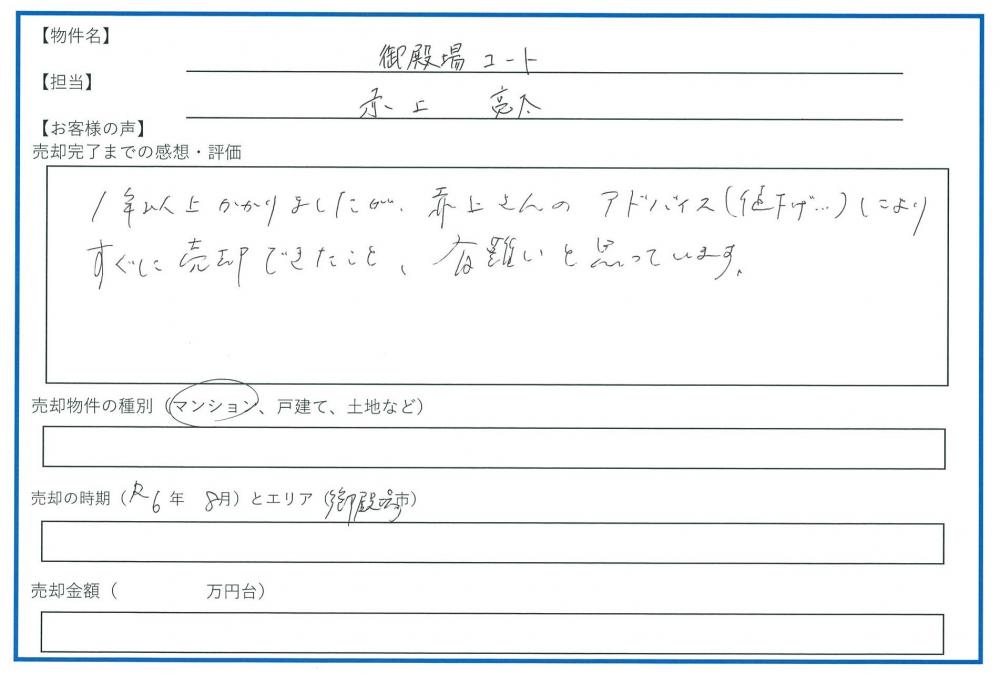 【物件名】
御殿場コート
【担当】
赤上 亮太
【お客様の声】
売却完了までの感想・評価
1年以上かかりましたが、赤上さんのアドバイス(値下げ…)により
すぐに売却できたこと、有難いと思っています。
売却物件の種別（マンション、戸建て、土地など）
売却の時期（R6年 8月）とエリア（御殿場市）
売却金額（ 万円台）